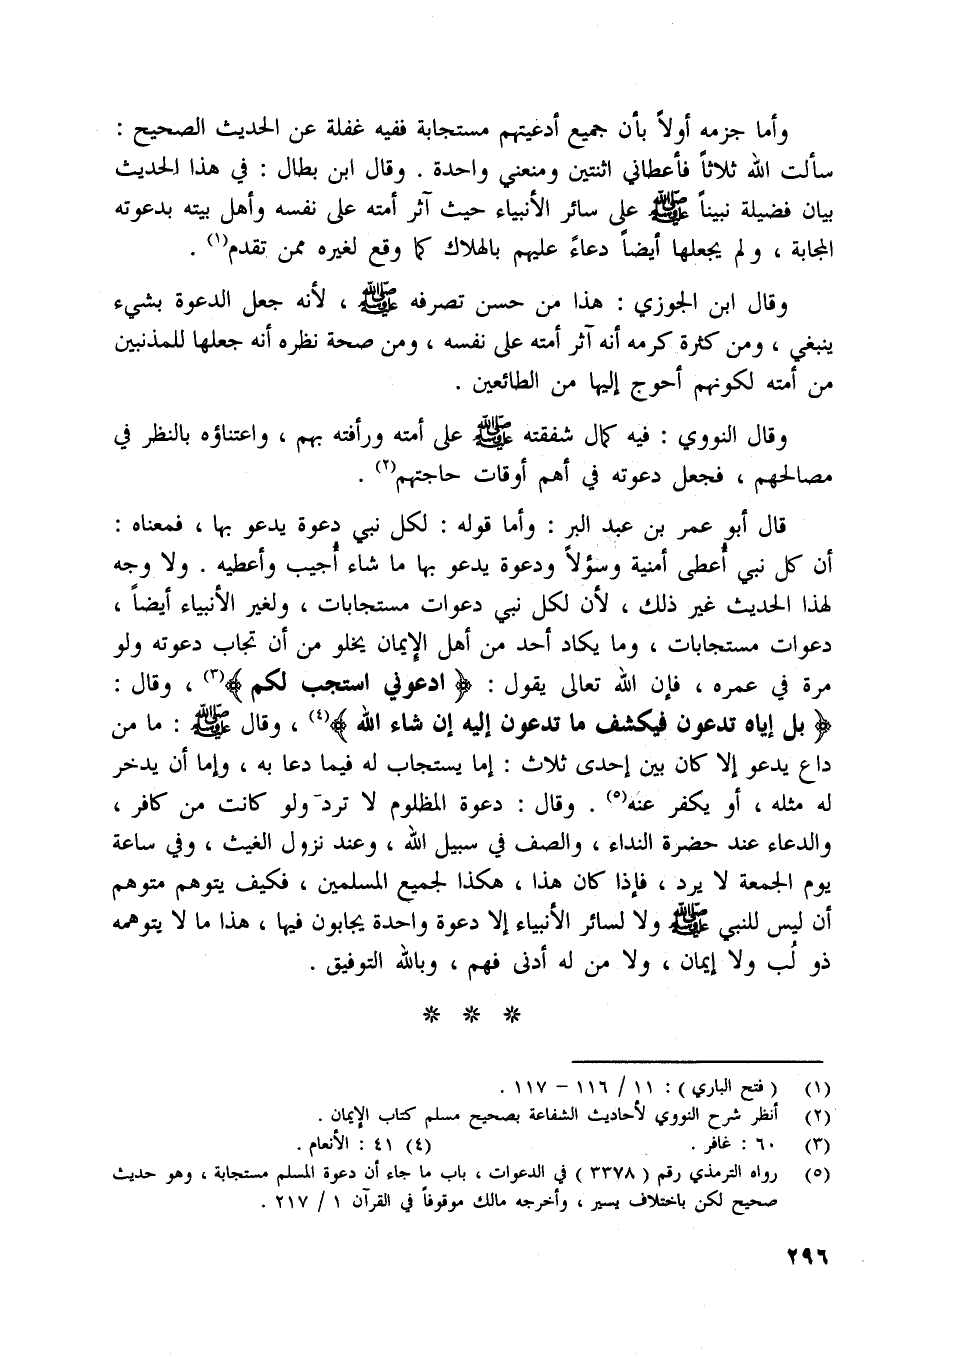 وأما جزمه أولاً بأن جميع أدعيتهم مستجابة ففيه غفلة عن الحديث الصحيح :
سألت الله ثلاثاً فأعطاني اثنتين ومنعني واحدة . وقال ابن بطال : في هذا الحديث
بيان فضيلة نبيناً ﷺ على سائر الأنبياء حيث آثر أمته على نفسه وأهل بيته بدعوته
المجابة ، ولم يجعلها أيضاً دعاءً عليهم بالهلاك كما وقع لغيره ممن تقدم(١) .
وقال ابن الجوزي : هذا من حسن تصرفه ﷺ ، لأنه جعل الدعوة بشيء
ينبغي ، ومن كثرة كرمه أنه آثر أمته على نفسه ، ومن صحة نظره أنه جعلها للمذنبين
من أمته لكونهم أحوج إليها من الطائعين .
وقال النووي : فيه كمال شفقته ﷺ على أمته ورأفته بهم ، واعتناؤه بالنظر في
مصالحهم ، فجعل دعوته في أهم أوقات حاجتهم(٢) .
قال أبو عمر بن عبد البر : وأما قوله : لكل نبي دعوة يدعو بها ، فمعناه :
أن كل نبي أُعطى أمنية وسؤلاً ودعوة يدعو بها ما شاء أُجيب وأعطيه . ولا وجه
لهذا الحديث غير ذلك ، لأن لكل نبي دعوات مستجابات ، ولغير الأنبياء أيضاً ،
دعوات مستجابات ، وما يكاد أحد من أهل الإيمان يخلو من أن تجاب دعوته ولو
مرة في عمره ، فإن الله تعالى يقول : ﴿ ادعوني استجب لكم ﴾(٣) ، وقال :
﴿ بل إياه تدعون فيكشف ما تدعون إليه إن شاء الله ﴾(٤) ، وقال ﷺ : ما من
داع يدعو إلا كان بين إحدى ثلاث : إما يستجاب له فيما دعا به ، وإما أن يدخر
له مثله ، أو يكفر عنه(٥) . وقال : دعوة المظلوم لا ترد ولو كانت من كافر ،
والدعاء عند حضرة النداء ، والصف في سبيل الله ، وعند نزول الغيث ، وفي ساعة
يوم الجمعة لا يرد ، فإذا كان هذا ، هكذا لجميع المسلمين ، فكيف يتوهم متوهم
أن ليس للنبي ﷺ ولا لسائر الأنبياء إلا دعوة واحدة يجابون فيها ، هذا ما لا يتوهمه
ذو لُب ولا إيمان ، ولا من له أدنى فهم ، وبالله التوفيق .
* * *
(١) ( فتح الباري ) : ١١ / ١١٦ – ١١٧ .
(٢) أنظر شرح النووي لأحاديث الشفاعة بصحيح مسلم كتاب الإيمان .
(٣) ٦٠ : غافر . (٤) ٤١ : الأنعام .
(٥) رواه الترمذي رقم ( ٣٣٧٨ ) في الدعوات ، باب ما جاء أن دعوة المسلم مستجابة ، وهو حديث
صحيح لكن باختلاف يسير ، وأخرجه مالك موقوفاً في القرآن ١ / ٢١٧ .
٢٩٦